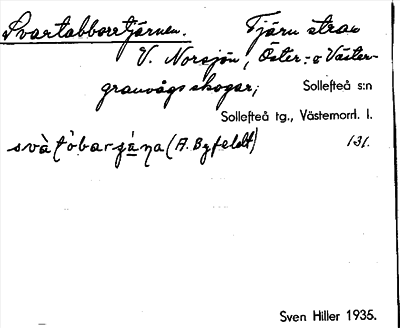 Svartabborrtjärnen. Tjärn strax
V. Norsjön, Öster- o Väster-
granvågs skogar; Sollefteå s:n
Sollefteå tg., Västernorrl. l.
(A. Byfeldt) 131.
Sven Hiller 1935.